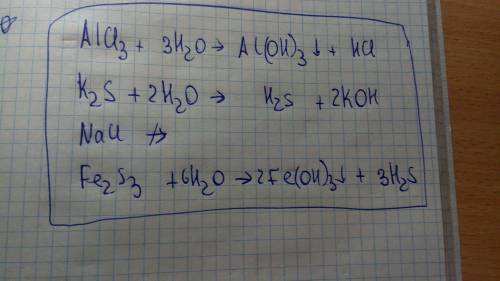 AlCl3 + 3H2O → Al(OH)3↓ + HCl
K2S + 2H2O → H2S + 2KOH
NaCl ↛
Fe2S3 + 6H2O → 2Fe(OH)3↓ + 3H2S